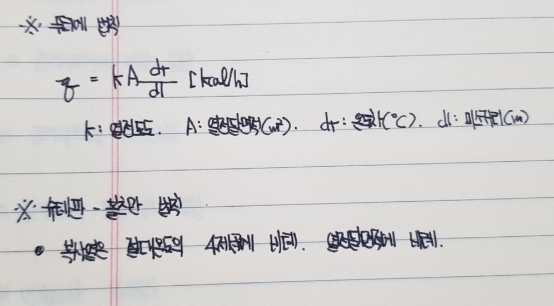 ※ 푸리에 법칙
q = kA dt/dl [kcal/h]
k : 열전도도. A : 열전달면적(m²). dt : 온도차(℃). dl : 미소거리(m)
※ 슈테판 - 볼츠만 법칙
• 복사열은 절대온도의 4제곱에 비례. 열전달면적에 비례.